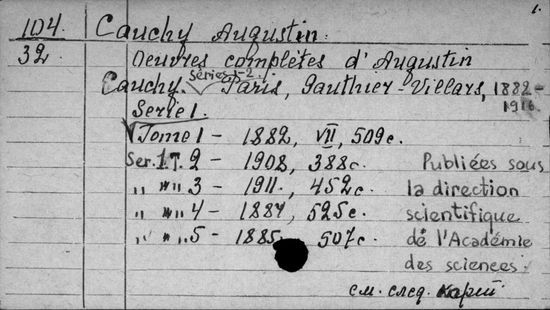 1.
104. Cauchy Augustin.
32. Oeuvres complètes d'Augustin
Cauchy. Séries 1-2. Paris, Gauthier-Villars, 1882-
1916.
Serie 1.
√Tome 1 - 1882, VII, 509c.
Ser. 1 T. 2 - 1908, 388c.
„ „ 3 - 1911, 452c.
„ „ 4 - 1884, 525c.
„ „ 5 - 1885, 507c.
Publiées sous
la direction
scientifique
de l'Académie
des sciences.
см. след. карт.